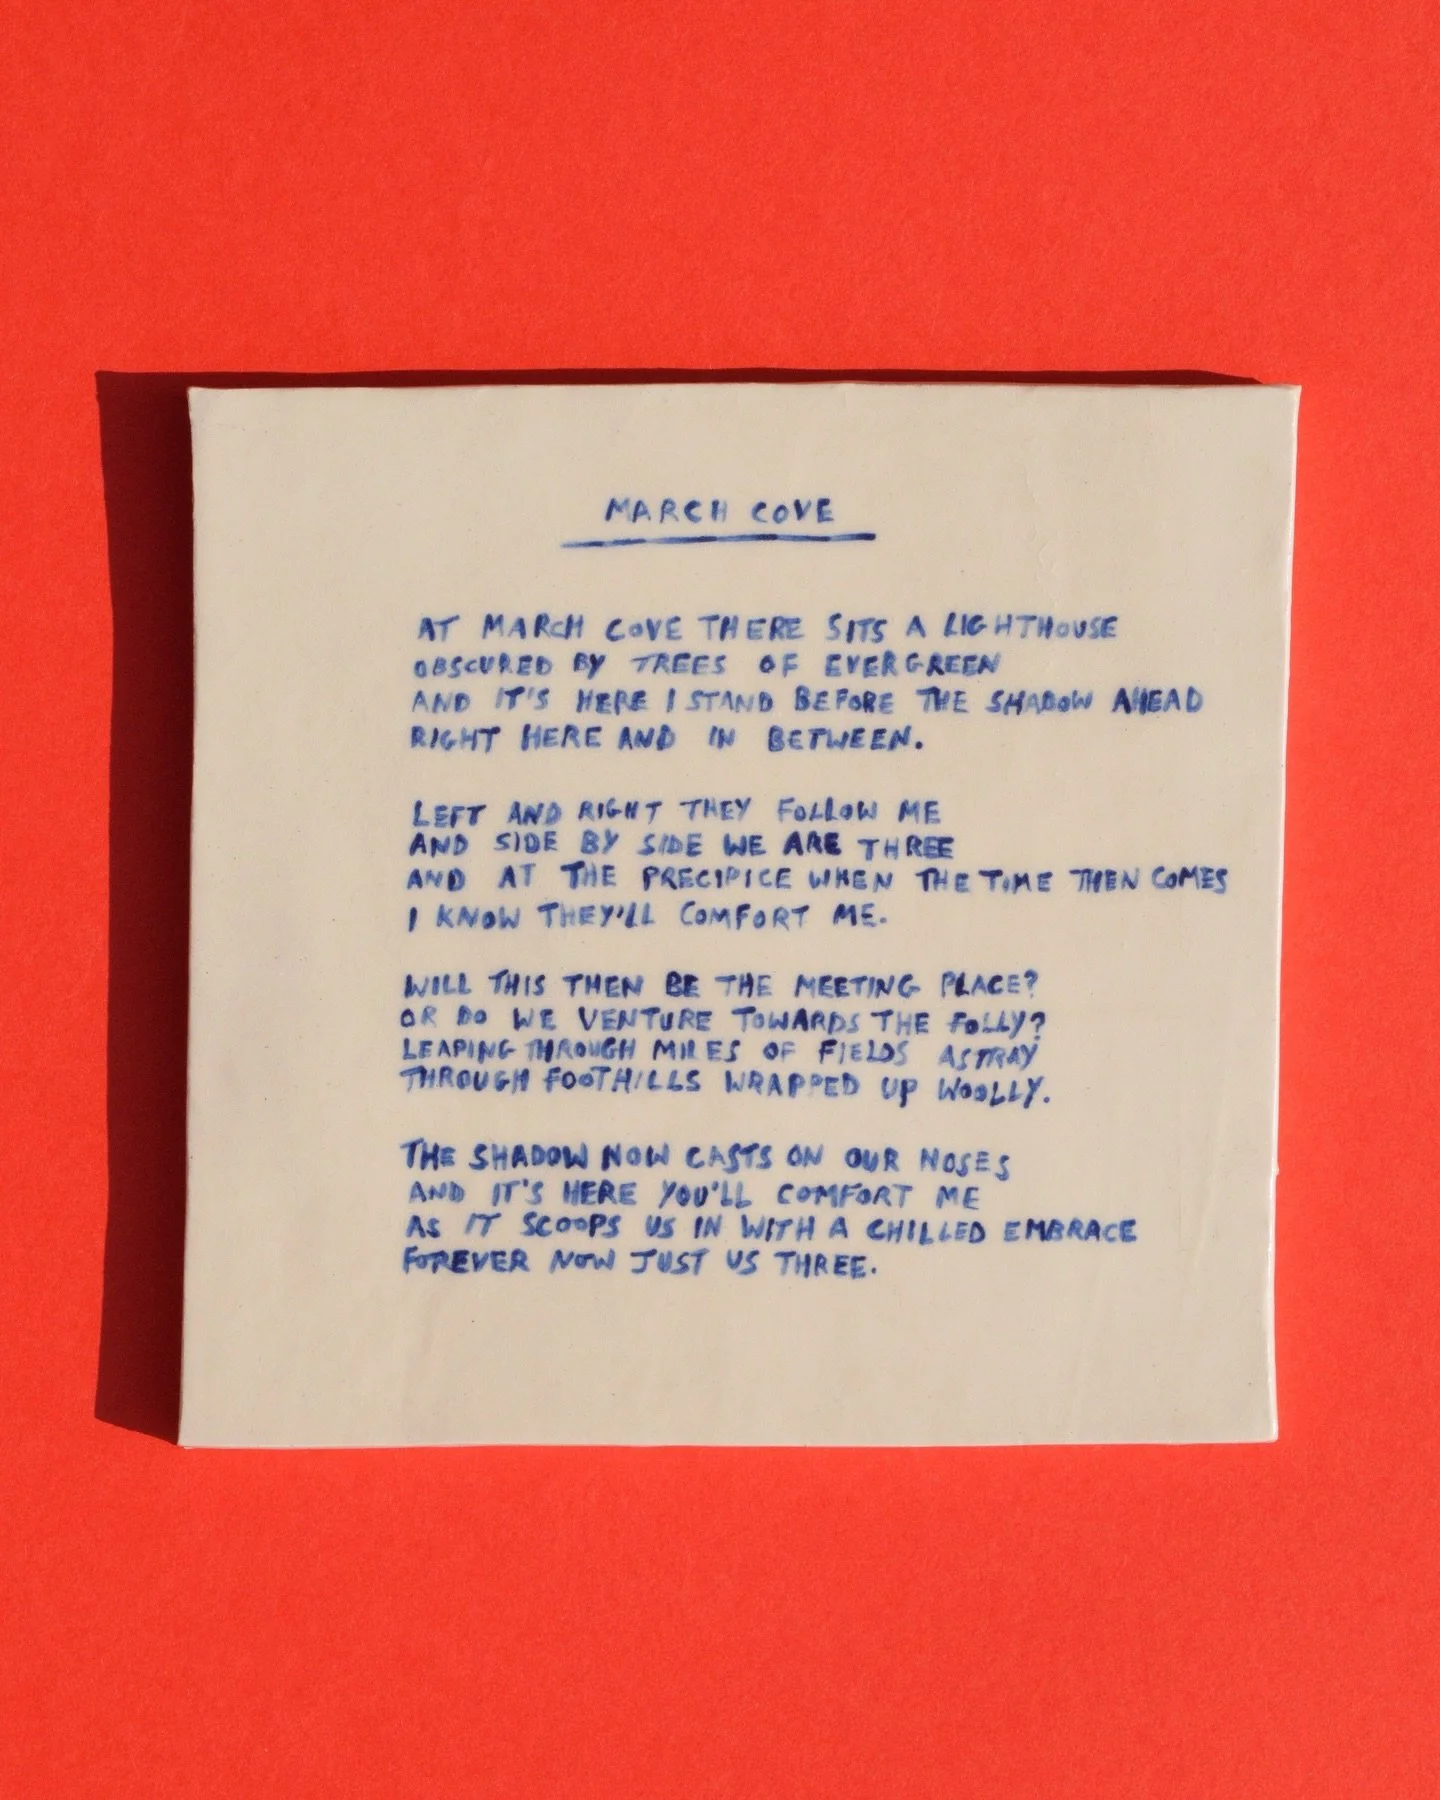 MARCH COVE
AT MARCH COVE THERE SITS A LIGHTHOUSE
OBSCURED BY TREES OF EVERGREEN
AND IT'S HERE I STAND BEFORE THE SHADOW AHEAD
RIGHT HERE AND IN BETWEEN.
LEFT AND RIGHT THEY FOLLOW ME
AND SIDE BY SIDE WE ARE THREE
AND AT THE PRECIPICE WHEN THE TIME THEN COMES
I KNOW THEY'LL COMFORT ME.
WILL THIS THEN BE THE MEETING PLACE?
OR DO WE VENTURE TOWARDS THE FOLLY?
LEAPING THROUGH MILES OF FIELDS ASTRAY
THROUGH FOOTHILLS WRAPPED UP WOOLLY.
THE SHADOW NOW CASTS ON OUR NOSES
AND IT'S HERE YOU'LL COMFORT ME
AS IT SCOOPS US IN WITH A CHILLED EMBRACE
FOREVER NOW JUST US THREE.